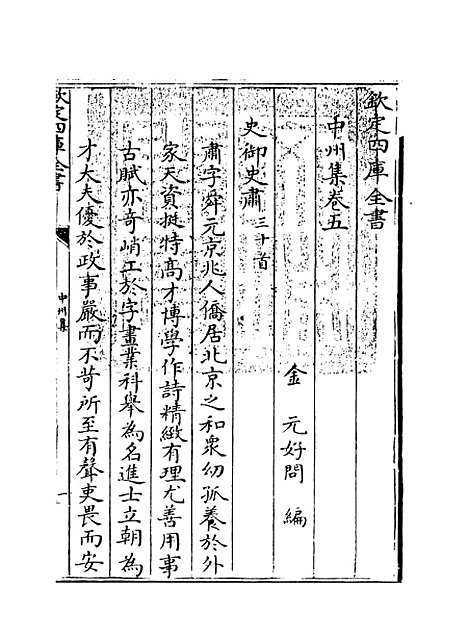 欽定四庫全書
中州集卷五
金 元好問 編
史御史肅 三十首
肅字舜元京兆人僑居北京之和衆幼孤養於外
家天資挺特高才博學作詩精緻有理尤善用事
古賦亦奇峭工於字畫業科舉為名進士立朝為
才大夫優於政事嚴而不苛所至有聲吏畏而安
欽定四庫全書
中州集
一